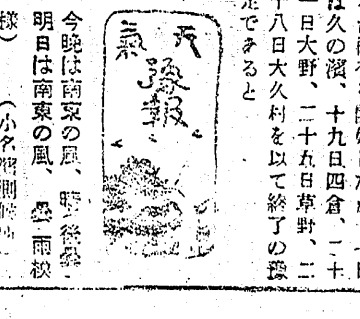 は久の濱、十九日四倉、二十
一日大野、二十五日草野、二
十八日大久村を以て終了の豫
定であると
天氣
豫報
今晩は南東の風、晴後曇
明日は南東の風、曇雨模
様)(小名濱測候